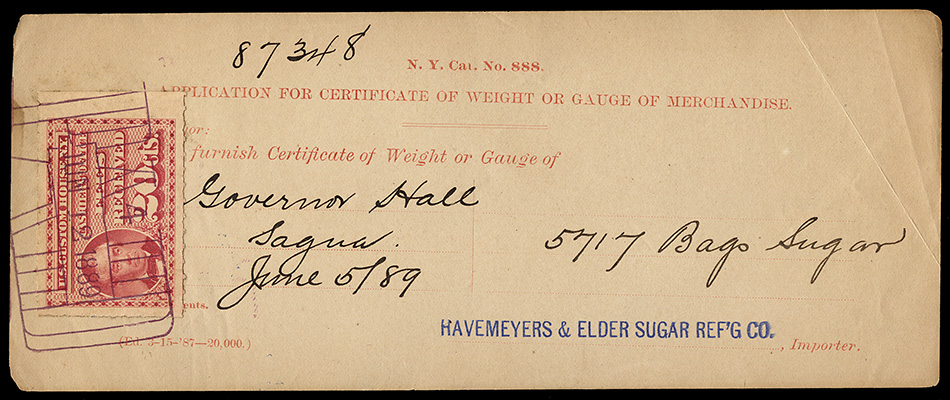 87348
N. Y. Cat. No. 888.
PPLICATION FOR CERTIFICATE OF WEIGHT OR GAUGE OF MERCHANDISE.
or:
furnish Certificate of Weight or Gauge of
Governor Hall
Sagua.
5717 Bags Sugar
June 5/89
ents.
HAVEMEYERS & ELDER SUGAR REF'G CO.
, Importer.
(Ed. 3-15-'87—20,000.)
U.S. CUSTOM HOUSE N.Y.
FEES
RECEIVED
20 Cts.
1889